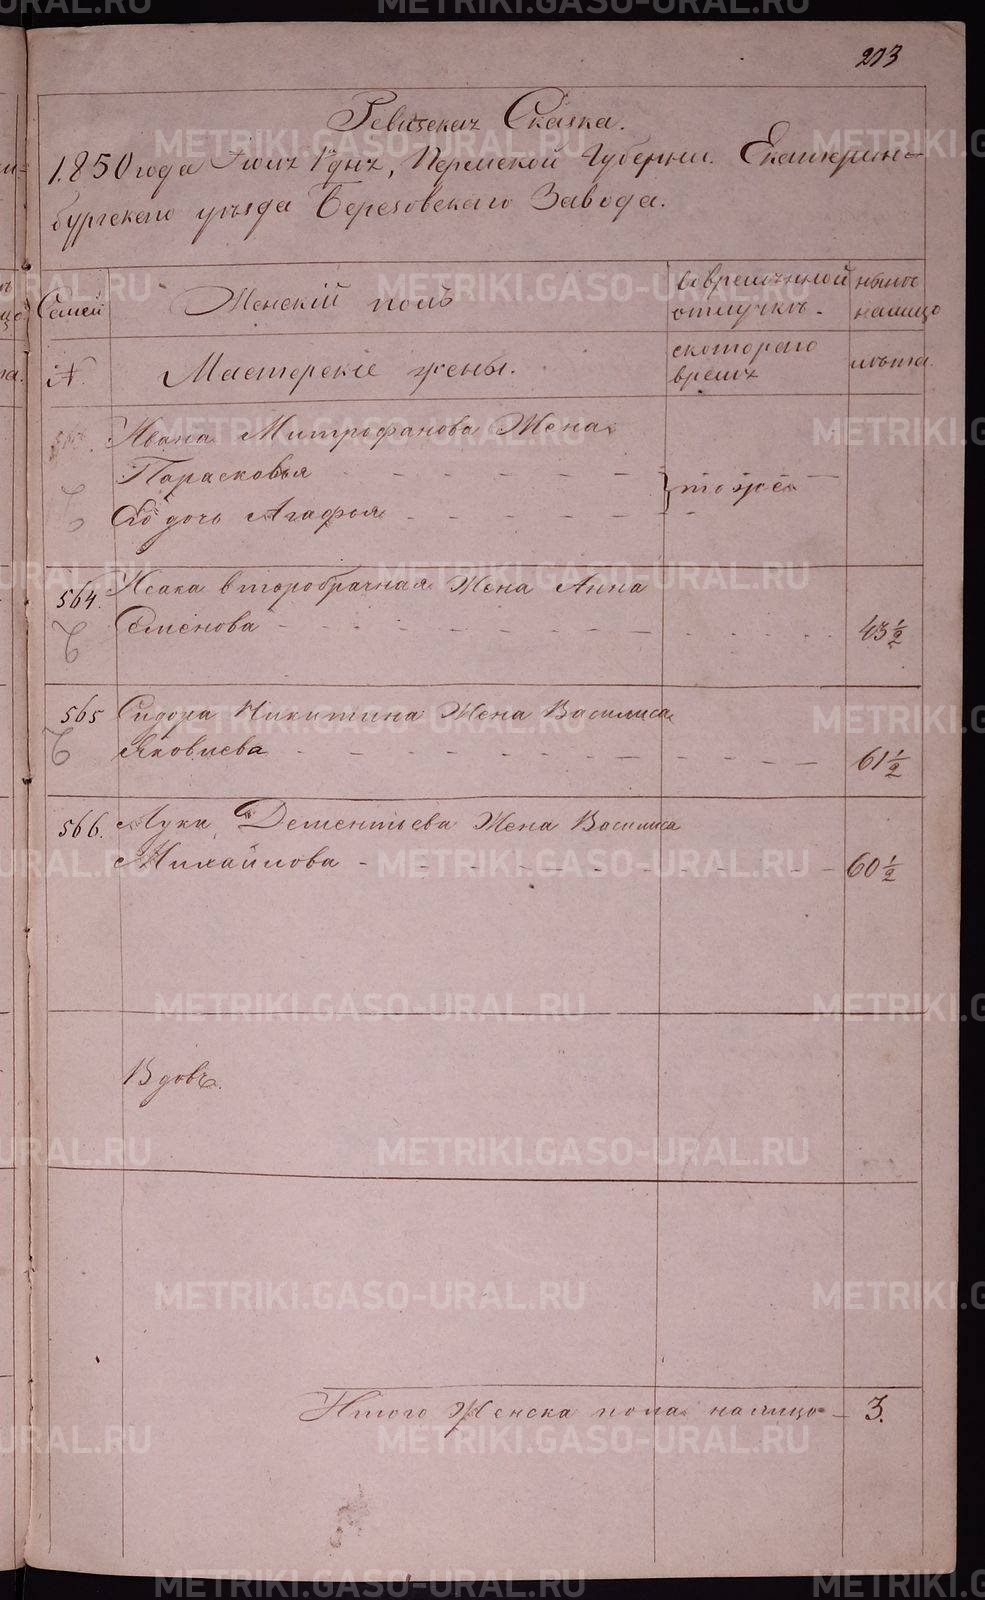 213
Ревизская Сказка.
1850 года Июля 1 дня, Пермской Губернии. Екатерин-
бургскаго уѣзда Березовскаго Завода.
Семей
Женскiй полъ
во временной
отлучкѣ.
нынѣ
налицо
№
Мастерскiе жены.
с котораго
время
лѣта.
Ивана Митрофанова Жена
Парасковья
Ево дочь Агафья
тоже
564. Исака второбрачная Жена Анна
Семенова 43½
565 Сидора Никитина Жена Василиса
Яковлева 61½
566. Луки Дементьева Жена Василиса
Михайлова 60½
Вдовъ.
Итого Женска пола налицо 3.
METRIKI.GASO-URAL.RU